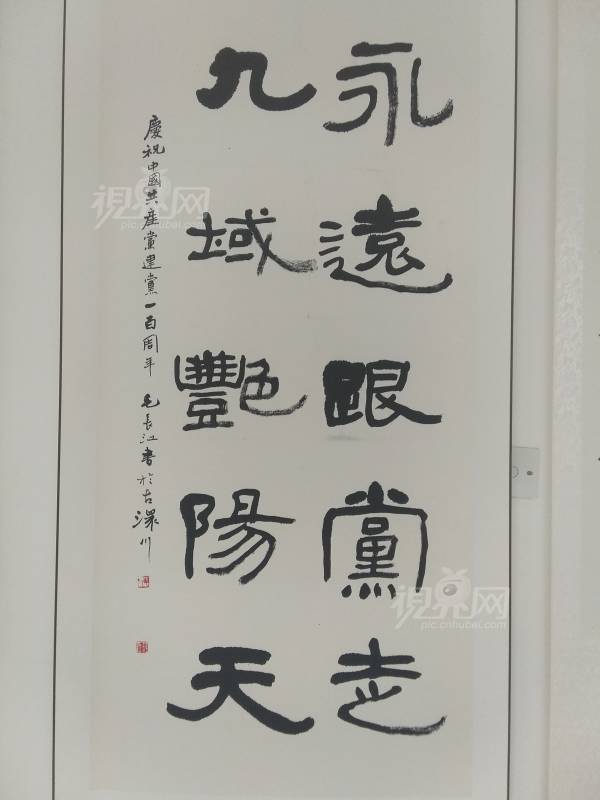 永遠跟黨走
九域艷陽天
慶祝中國共產黨建黨一百周年 毛長江書於古濮川
視界网
pic.cnhubei.com
視界网
pic.cnhubei.com